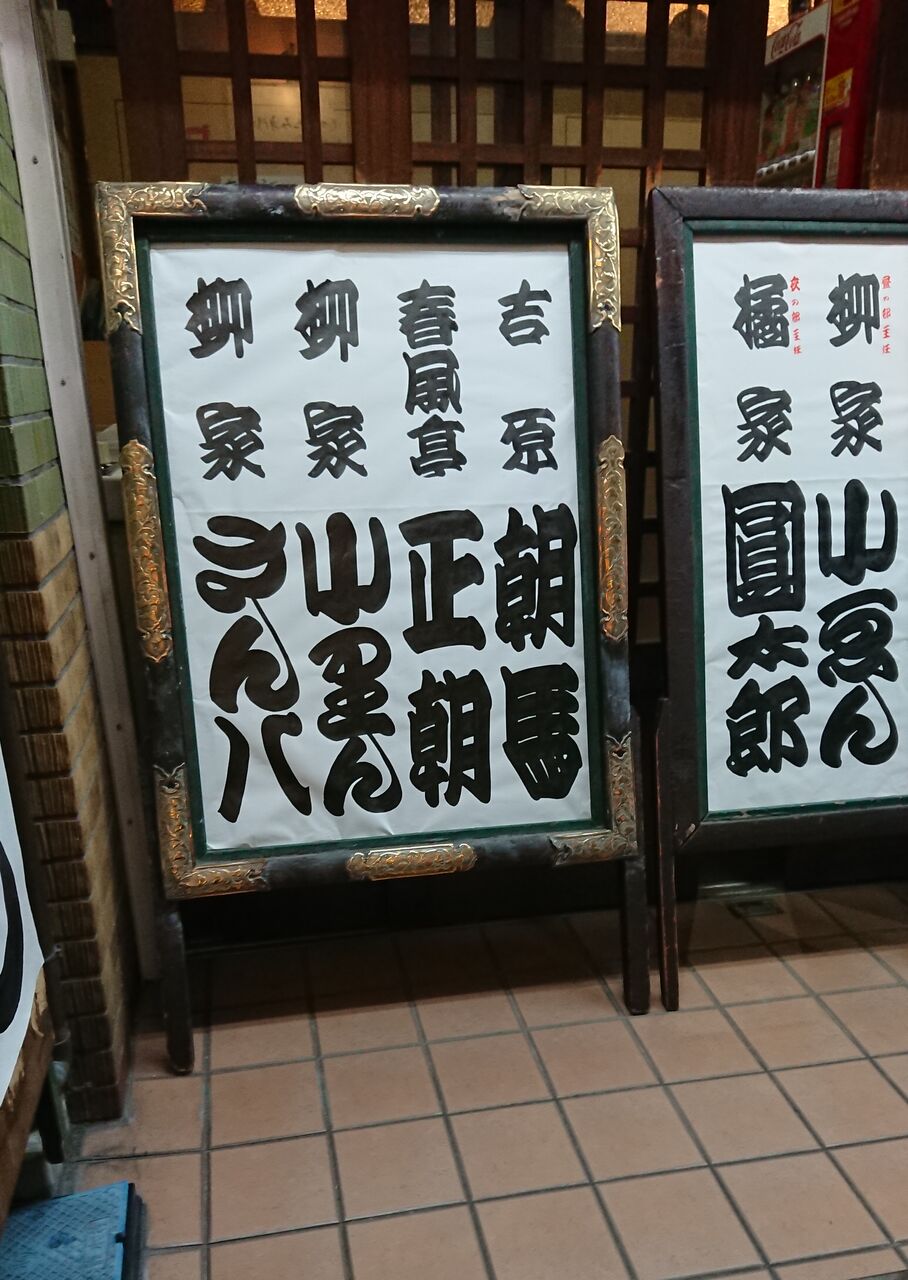 昼の部主任
柳家小ゑん
夜の部主任
橘家圓太郎
吉原朝馬
春風亭正朝
柳家小里ん
柳家さん八
Coca-Cola